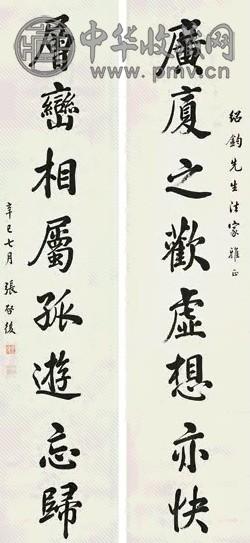 中华收藏网
www.pmvc.cn
紹鈞先生法家雅正
廣廈之歡虛想亦快
層巒相屬孤遊忘歸
辛巳七月 張啟後